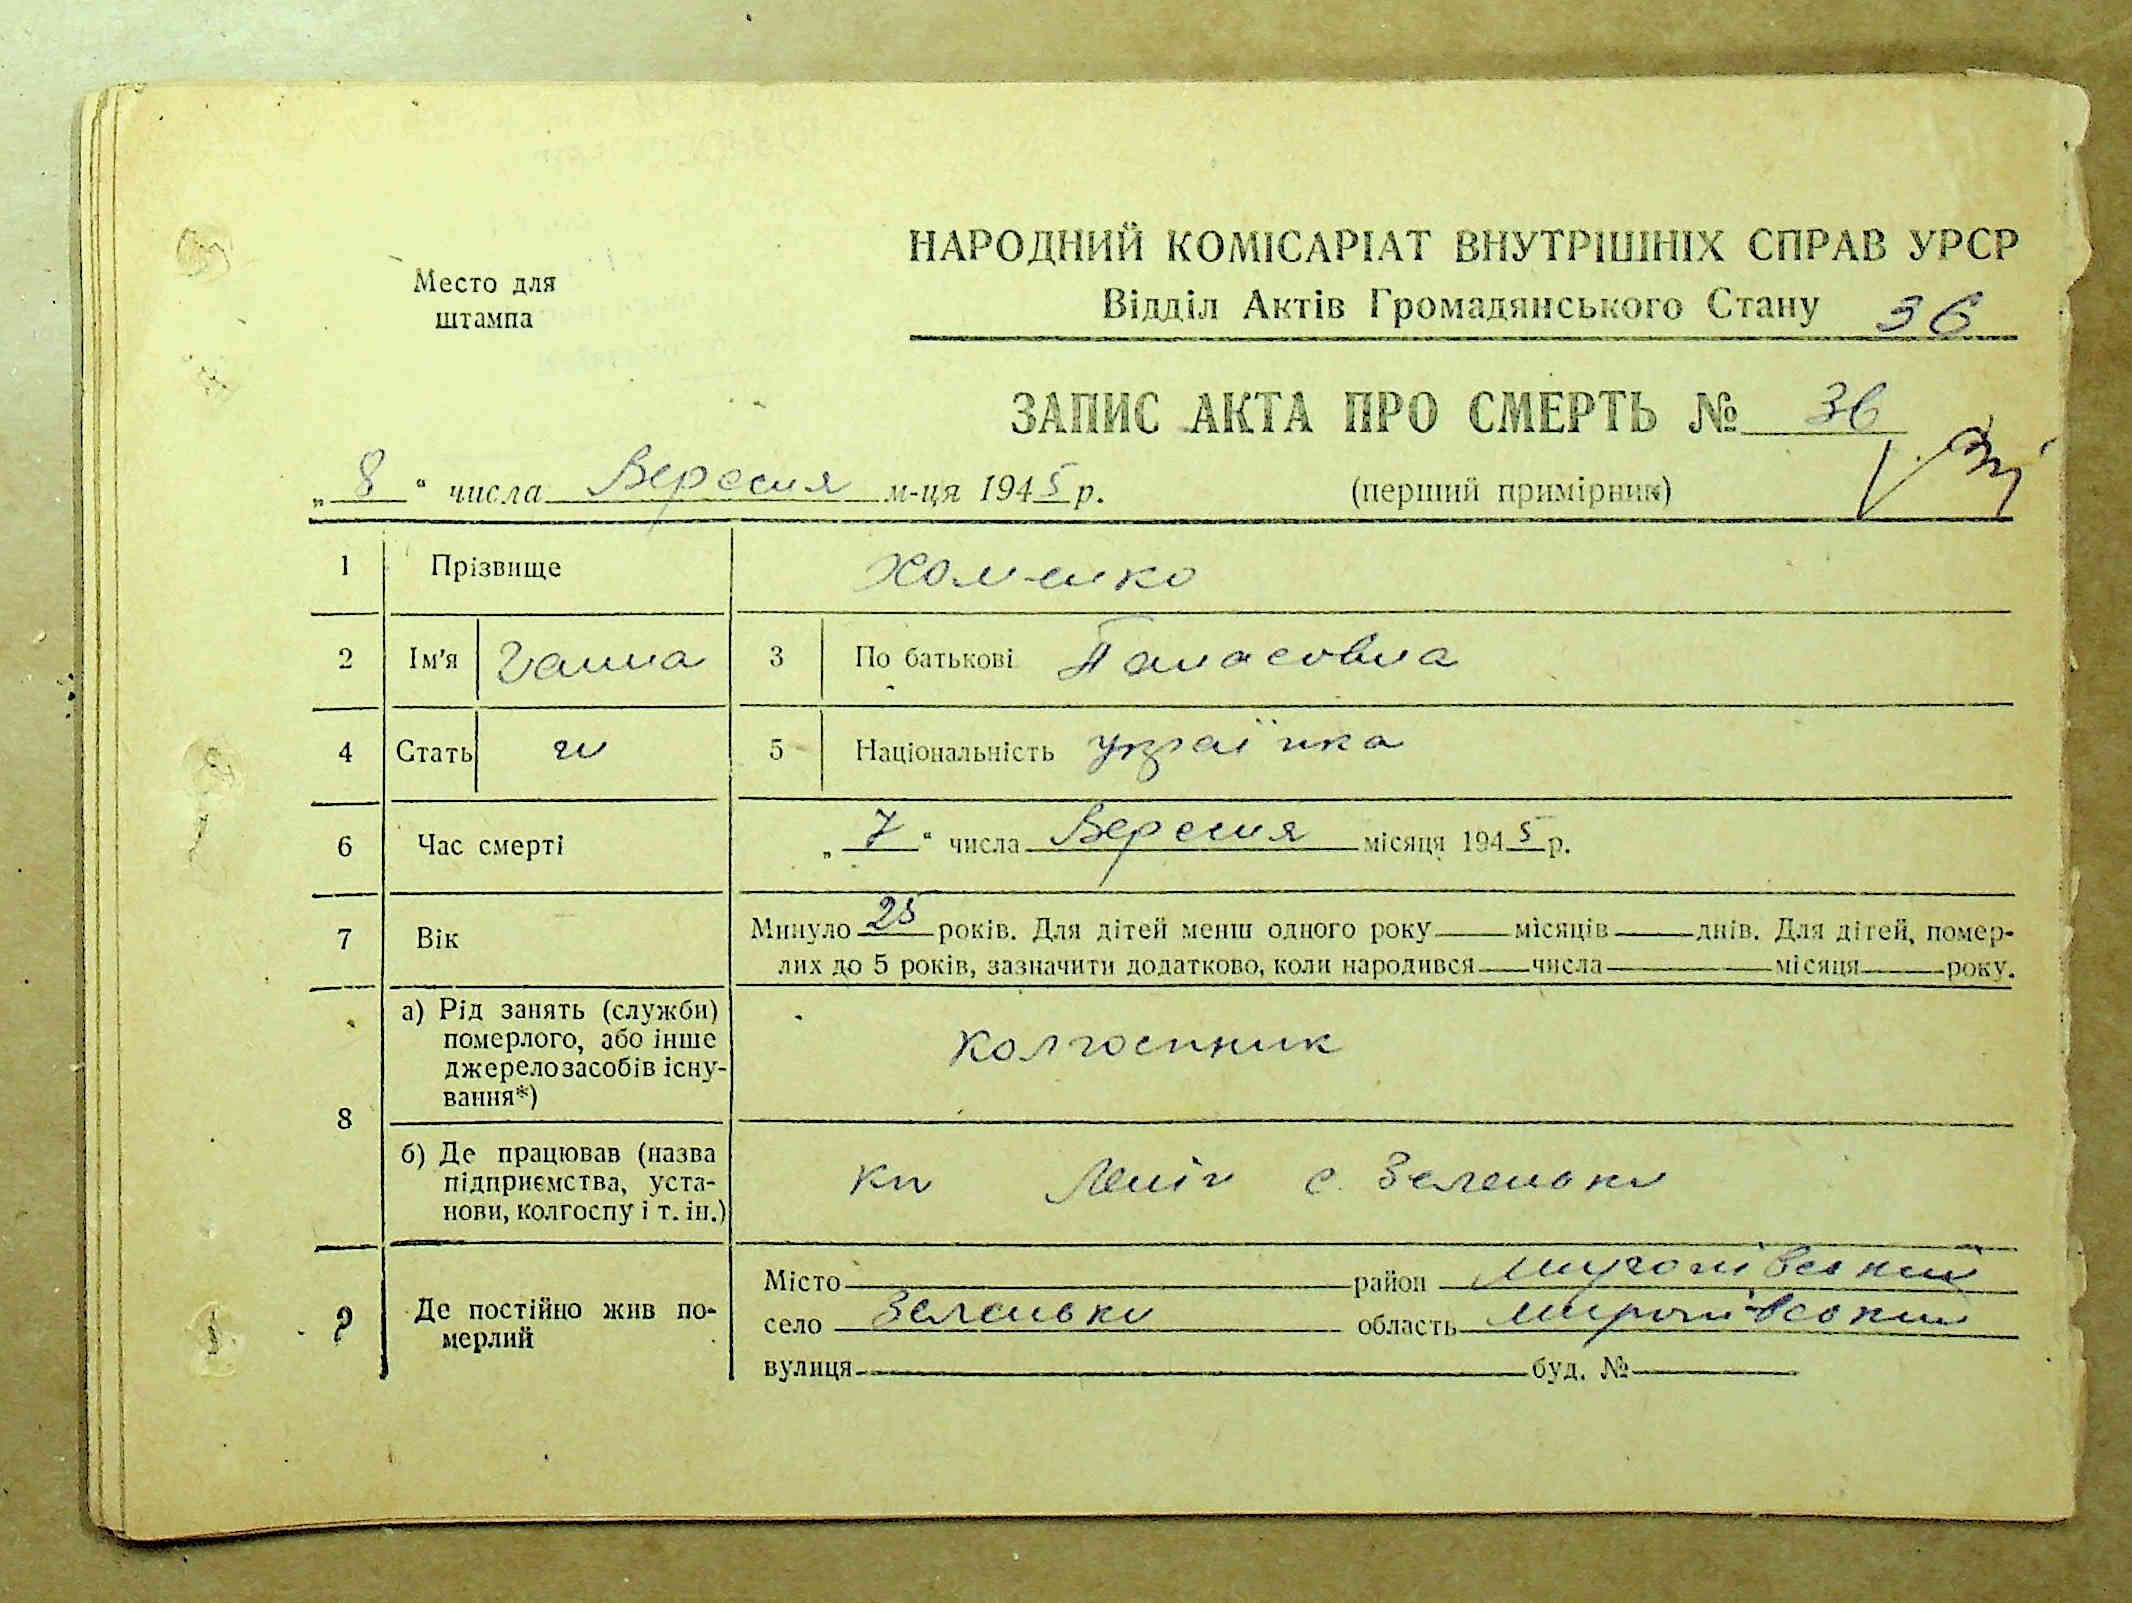 НАРОДНИЙ КОМІСАРІАТ ВНУТРІШНІХ СПРАВ УРСР
Место для
штампа
Відділ Актів Громадянського Стану 36
ЗАПИС АКТА ПРО СМЕРТЬ № 36
„ 8 “ числа Вересня м-ця 1945 р. (перший примірник)
1 Прізвище Хоменко
2 Ім'я Ганна 3 По батькові Панасовна
4 Стать ж 5 Національність українка
6 Час смерті „ 7 “ числа Вересня місяця 1945 р.
7 Вік Минуло 25 років. Для дітей менш одного року місяців днів. Для дітей, помер-
лих до 5 років, зазначити додатково, коли народився числа місяця року.
8 а) Рід занять (служби)
померлого, або інше
джерело засобів існу-
вання*)
колгоспник
б) Де працював (назва
підприємства, уста-
нови, колгоспу і т. ін.)
кп Леніг с. Зеленьки
9 Де постійно жив по-
мерлий
Місто район миронівський
село Зеленьки область миронівський
вулиця буд. №